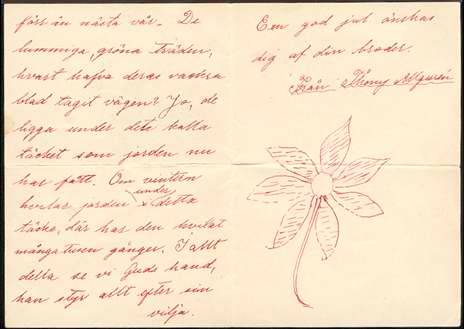 förr än nästa vår. De
lummiga, gröna träden,
hvart hafva deras vackra
blad tagit vägen? Jo, de
ligga under dete kalla
täcket som jorden nu
har fått. Om vintern
hvilar jorden under detta
täcke, där har den hvilat
många tusen gånger. I allt
detta se vi Guds hand,
han styr allt efter sin
vilja.
En god jul önskas
dig af din broder.
Från Thony